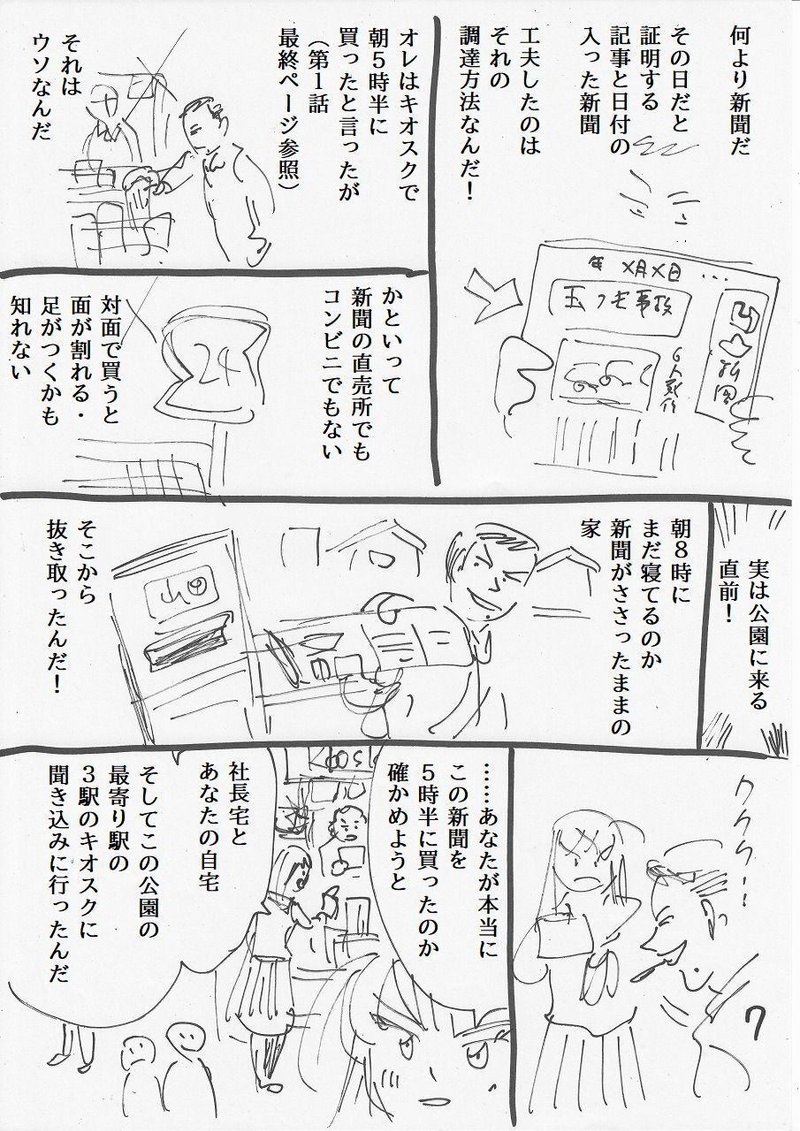 何より新聞だ
その日だと
証明する
記事と日付の
入った新聞
工夫したのは
それの
調達方法なんだ！
年 ×月×日 …
玉つき事故
オレはキオスクで
朝５時半に
買ったと言ったが
（第１話
最終ページ参照）
それは
ウソなんだ
かといって
新聞の直売所でも
コンビニでもない
24
対面で買うと
面が割れる・
足がつくかも
知れない
実は公園に来る
直前！
朝８時に
まだ寝てるのか
新聞がささったままの
家
山田
そこから
抜き取ったんだ！
ククク…
7
……あなたが本当に
この新聞を
５時半に買ったのか
確かめようと
社長宅と
あなたの自宅
そしてこの公園の
最寄り駅の
３駅のキオスクに
聞き込みに行ったんだ